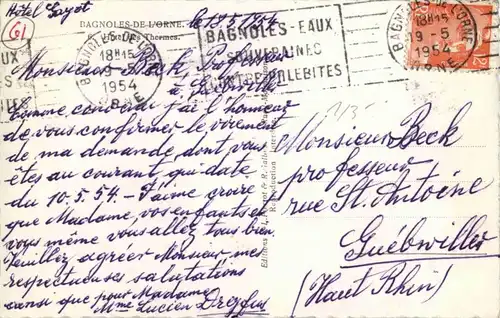 Hôtel Gayot
61
BAGNOLES-DE-L'ORNE.
le 19 5 1954
Hôtel des Thermes.
Monsieur Beck Professeur
à Guebwiller
Comme convenu j'ai l'honneur
de vous confirmer le virement
de ma demande dont vous
êtes au courant, qui date
du 10.5.54 - J'aime croire
que Madame, vos enfants et
vous même vous allez tous bien.
Veuillez agréer Monsieur, mes
respectueuses salutations
ainsi que pour Madame
Mme Lucien Dreyfus
BAGNOLES DE L'ORNE
18H15
19-5
1954
ORNE
BAGNOLES-EAUX
SOUVERAINES
CONTRE PHLEBITES
BAGNOLES DE L'ORNE
18H15
19-5
1954
ORNE
Monsieur Beck
professeur
rue St. Antoine
Guebwiller
(Haut Rhin)